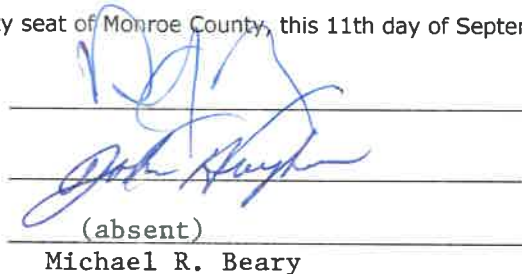 y seat of Monroe County, this 11th day of Septem
John
(absent)
Michael R. Beary